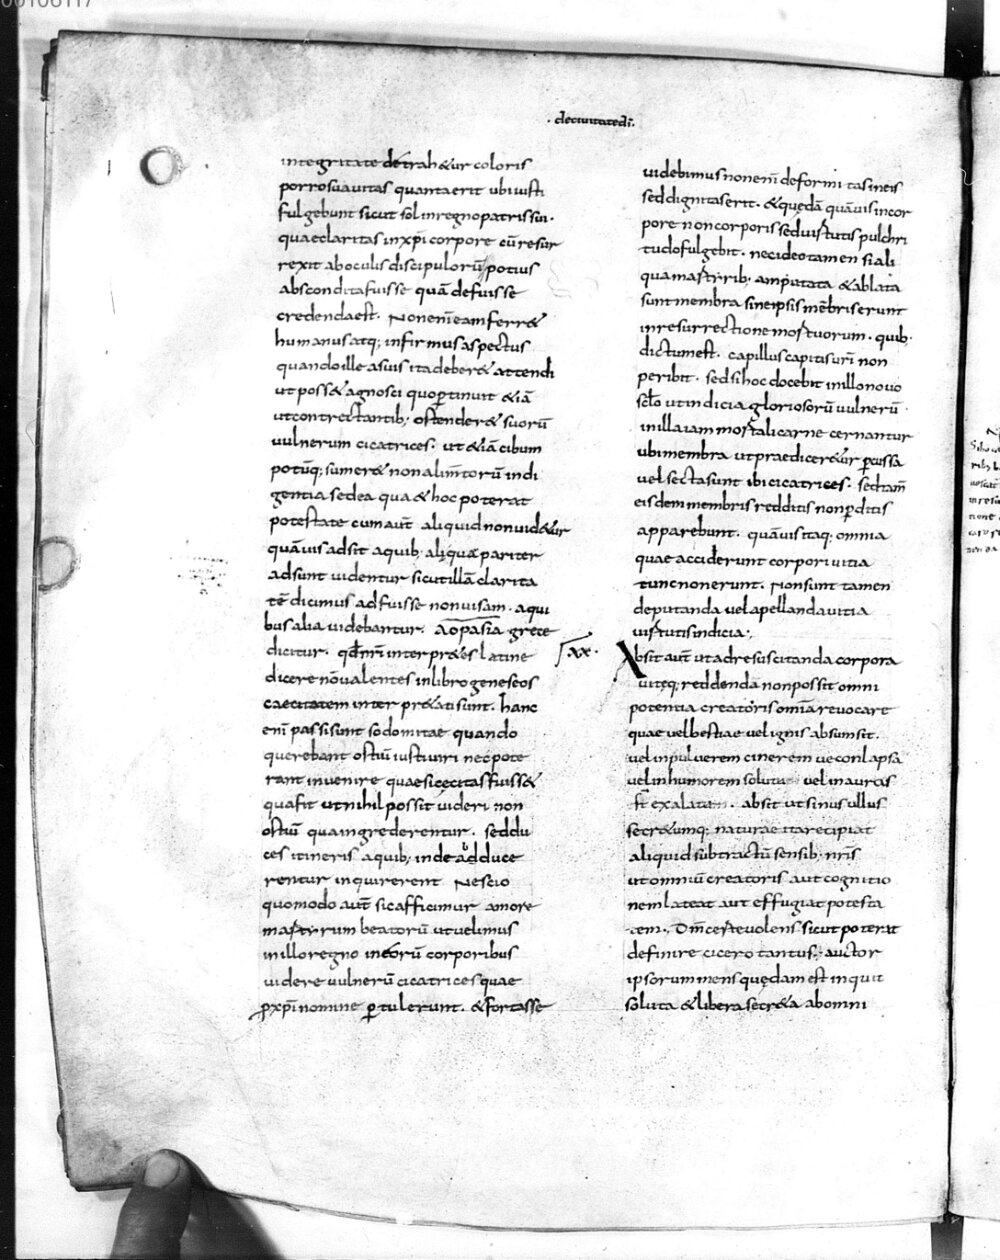 00106117
· deciuitatedī·
integritate detrah&ur coloris
porro suauitas quanta erit ubi iusti
fulgebunt sicut sol in regno patris sui·
quae claritas in xp̄i corpore cū resur
rexit ab oculis discipulorū potius
abscondita fuisse quā defuisse
credenda est. Non enī eam ferr&
humanus atq; infirmus aspectus
quando ille a suis ita deber& attendi
ut poss& agnosci quo ꝑtinuit &iā
ut contrectantib; ostender& suorū
uulnerum cicatrices· ut &iā cibum
potūq; sumer& non alim̄torū indi
gentia sed ea qua & hoc poterat
potestate cum aut̄ aliquid non uid&ur
quāuis adsit a quib; aliqua pariter
adsunt uidentur sicut illā clarita
tē dicimus adfuisse non uisam· a qui
bus alia uidebantur. ΑΟΡΑSIA grece
dicitur· qd̄ nr̄i interpr&es latine
dicere nō ualentes in libro geneseos
caecitatem interpr&ati sunt. hanc
enī passi sunt sodomitae quando
querebant ostiū iusti uiri nec pote
rant inuenire quae si cecitas fuiss&
qua fit ut nihil possit uideri non
ostiū qua ingrederentur· sed du
ces itineris a quib; inde adduce
rentur inquirerent Nescio
quomodo aut̄ sic afficimur amore
martyrum beatorū ut uelimus
in illo regno in eorū corporibus
uidere uulnerū cicatrices quae
ꝓ xp̄i nomine ꝑtulerunt. & fortasse
uidebimus non enī deformitas in eis
sed dignitas erit· & quędā quāuis in cor
pore non corporis sed uirtutis pulchri
tudo fulgebit· nec ideo tamen si ali
qua martyrib; amputata & ablata
sunt membra sine ipsis mēbris erunt
in resurrectione mortuorum· quib;
dictum est. capillus capitis ur̄i non
peribit· sed si hoc docebit in illo nouo
sc̄lo ut indicia gloriosorū uulnerū·
in illa iam mortali carne cernantur
ubi membra ut praedicer&ur ꝑcussa
uel secta sunt ibi cicatrices· sed tam̄
eisdem membris redditis non ꝑditis
apparebunt· quāuis itaq; omnia
quae acciderunt corpori uitia
tunc non erunt· Non sunt tamen
deputanda uel apellanda uitia
uirtutis indicia·,
xx·
Absit aut̄ ut ad resuscitanda corpora
uiteq; reddenda non possit omni
potentia creatoris omīa reuocare
quae uel bestiae uel ignis absumsit·
uel in puluerem cinerem ue conlapsa
uel in humorem soluta uel in auras
st̄ exalata· absit ut sinus ullus
secr&umq; naturae ita recipiat
aliquid subtractū sensib; nr̄is
ut omniū creatoris aut cognitio
nem lateat aut effugiat potesta
tem·, Dm̄ certe uolens sicut poterat
definire cicero tantus· auctor
ipsorum mens quędam est inquit
soluta & libera secr&a ab omni